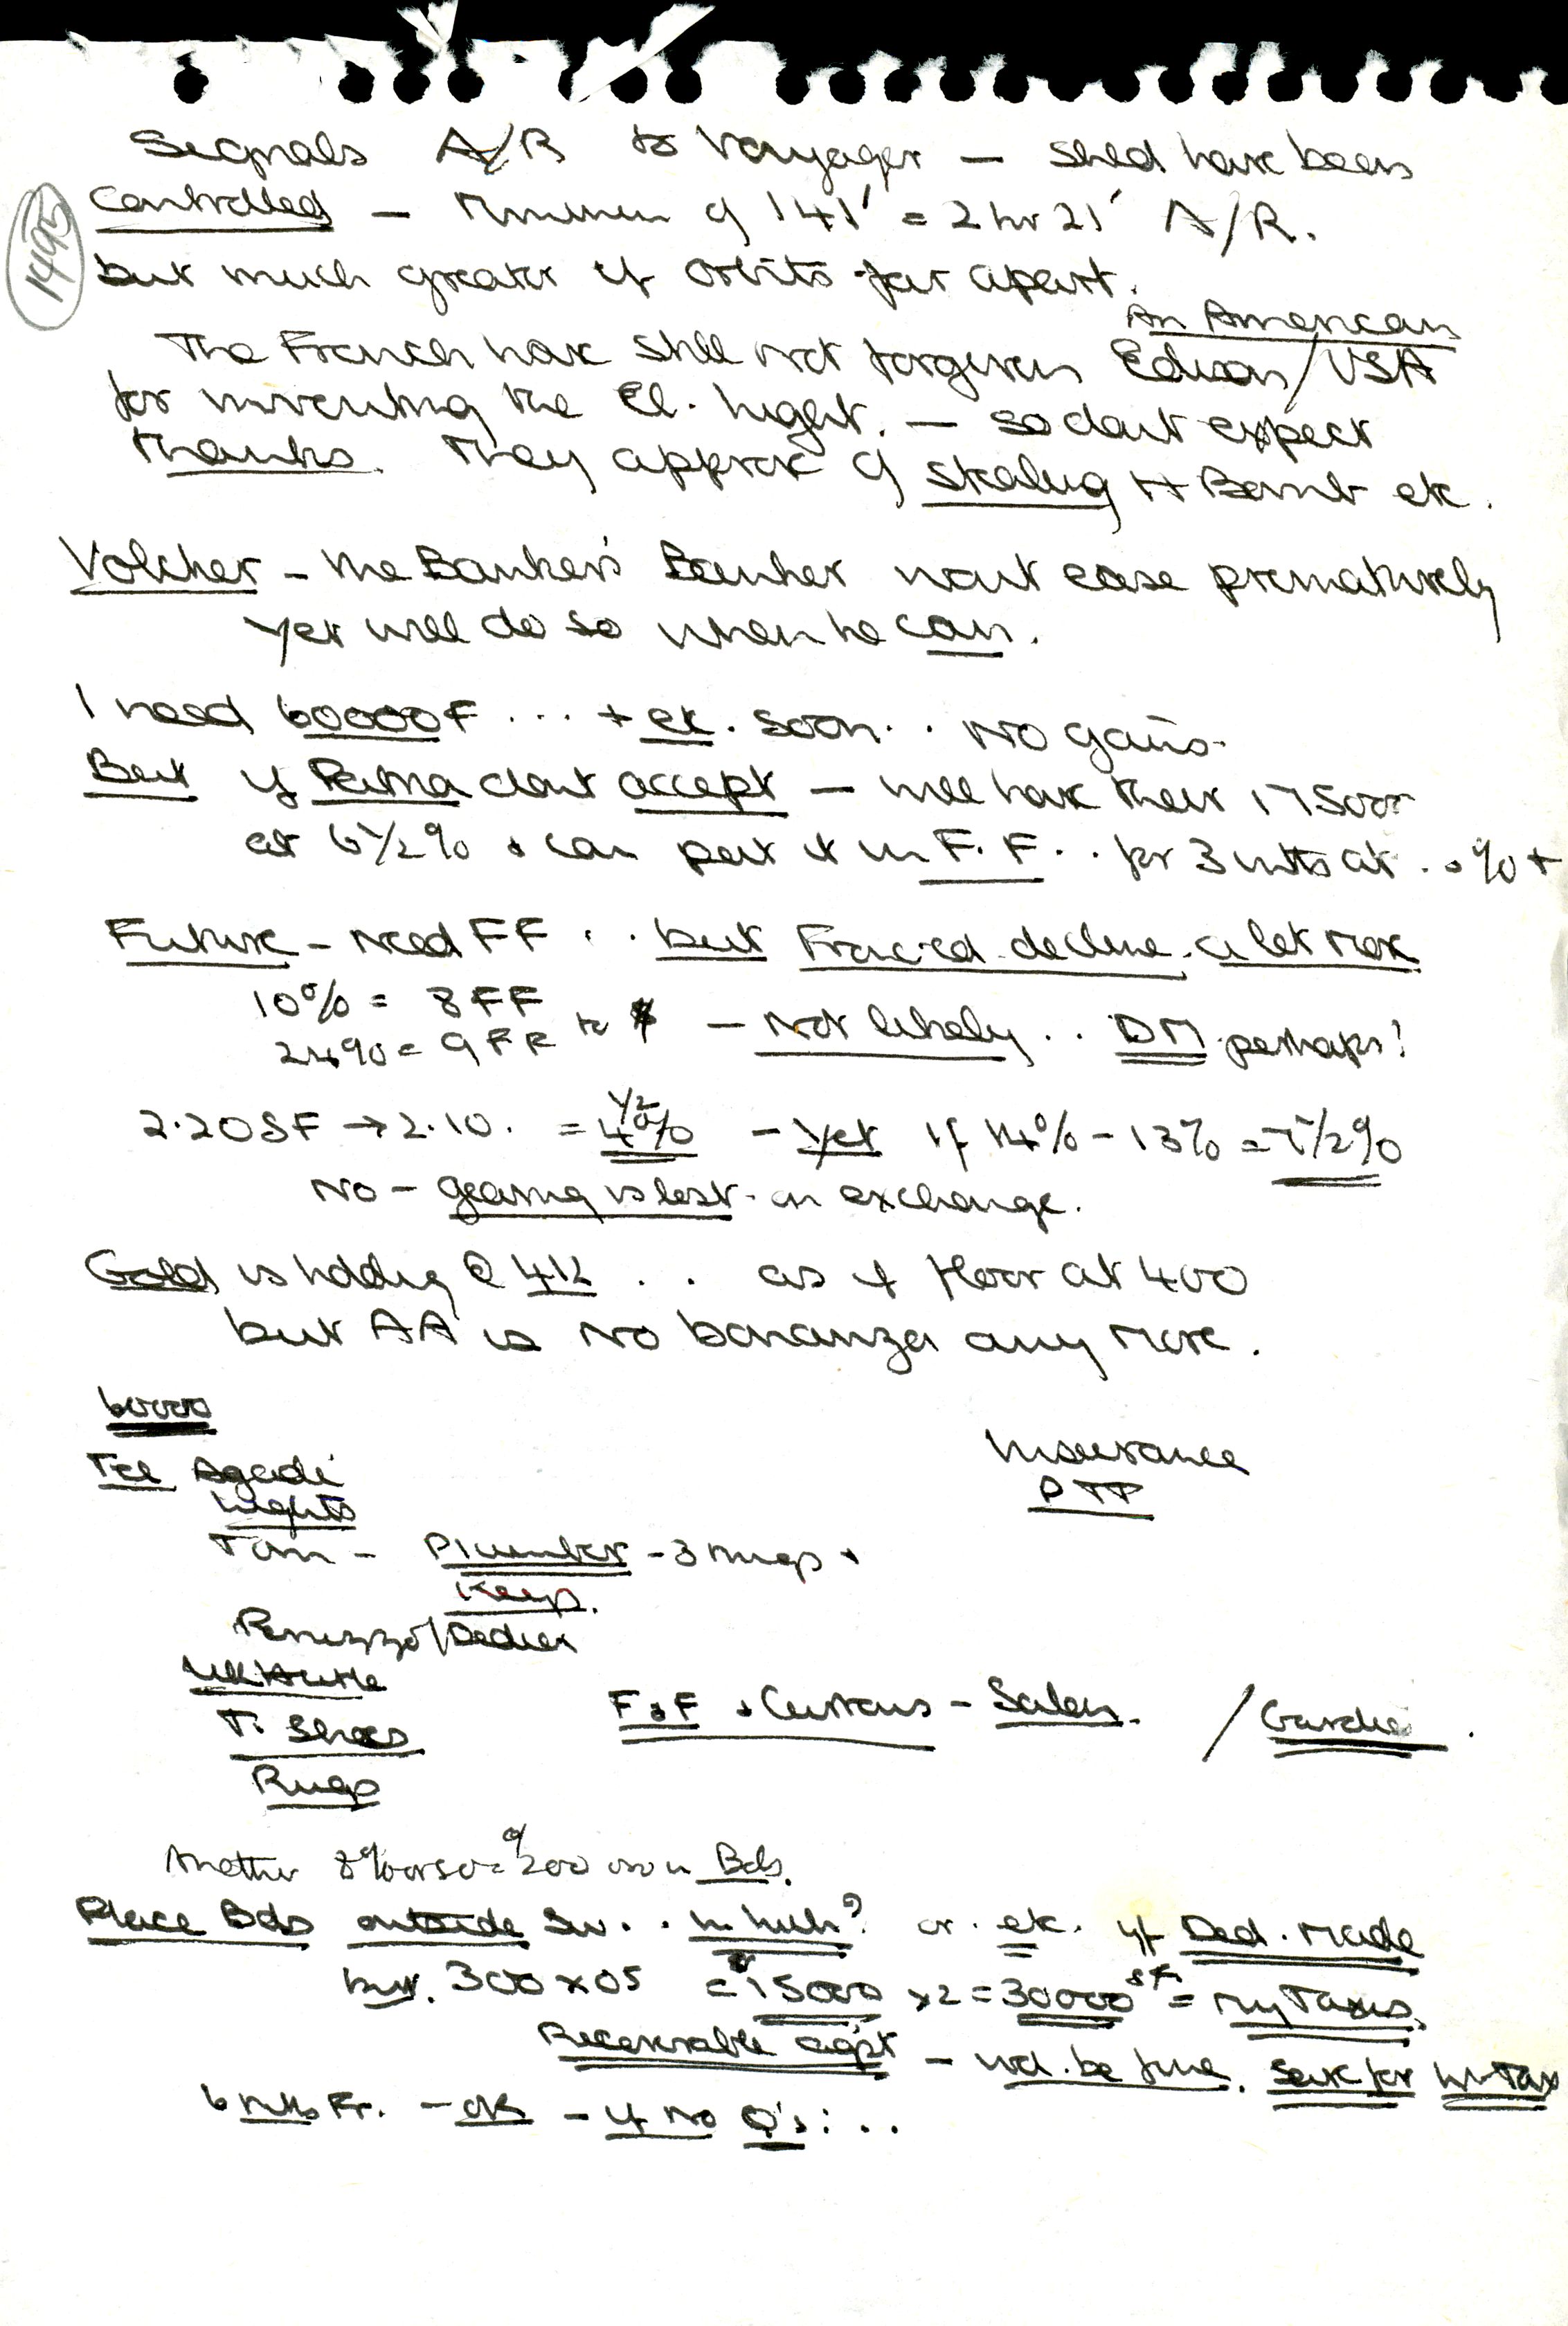 Signals A/R to Voyager — shld have been
1495
Controlled — Minimum of 141' = 2 hr 21' A/R.
but much greater if orbits far apart.
An American
The French have still not forgiven Edison/USA
for inventing the El. Light. — so dont expect
thanks. They approve of stealing H Bomb etc.
Volcker — the Banker's Banker wont ease prematurely
yet will do so when he can.
I need 60000F ... + etc. soon.. No gains.
But if dont accept — will have their 17500
at 6½% & can put it in F.F.. for 3 mths at ..% +
Future — need FF .. but decline a lot more
10% = 8FF
24% = 9FF to $ — Not likely.. DM perhaps!
2.20SF → 2.10. = 4½% — Yet if 14% - 13% = 7½%
No — gearing is lost on exchange.
Gold is holding @ 412 .. as if floor at 400
but AA is no bonanza any more.
60000
Tel Agadi
Insurance
Lights
PTT
Tom — Plumber — 3 mugs +
Keep.
T. Shoes
F & F & Currans — Salon. /
Rugs
Another 8% or so = 200 in Bds.
Place Bds outside Sw.. ? or etc. if Ded. made
but. 300 x 05 = 15000 x2 = 30000 SF = my Taxes.
Receivable agst — wd. be fine. Save for In-Tax
6 mths Fr. — OK — if no Q's: ..